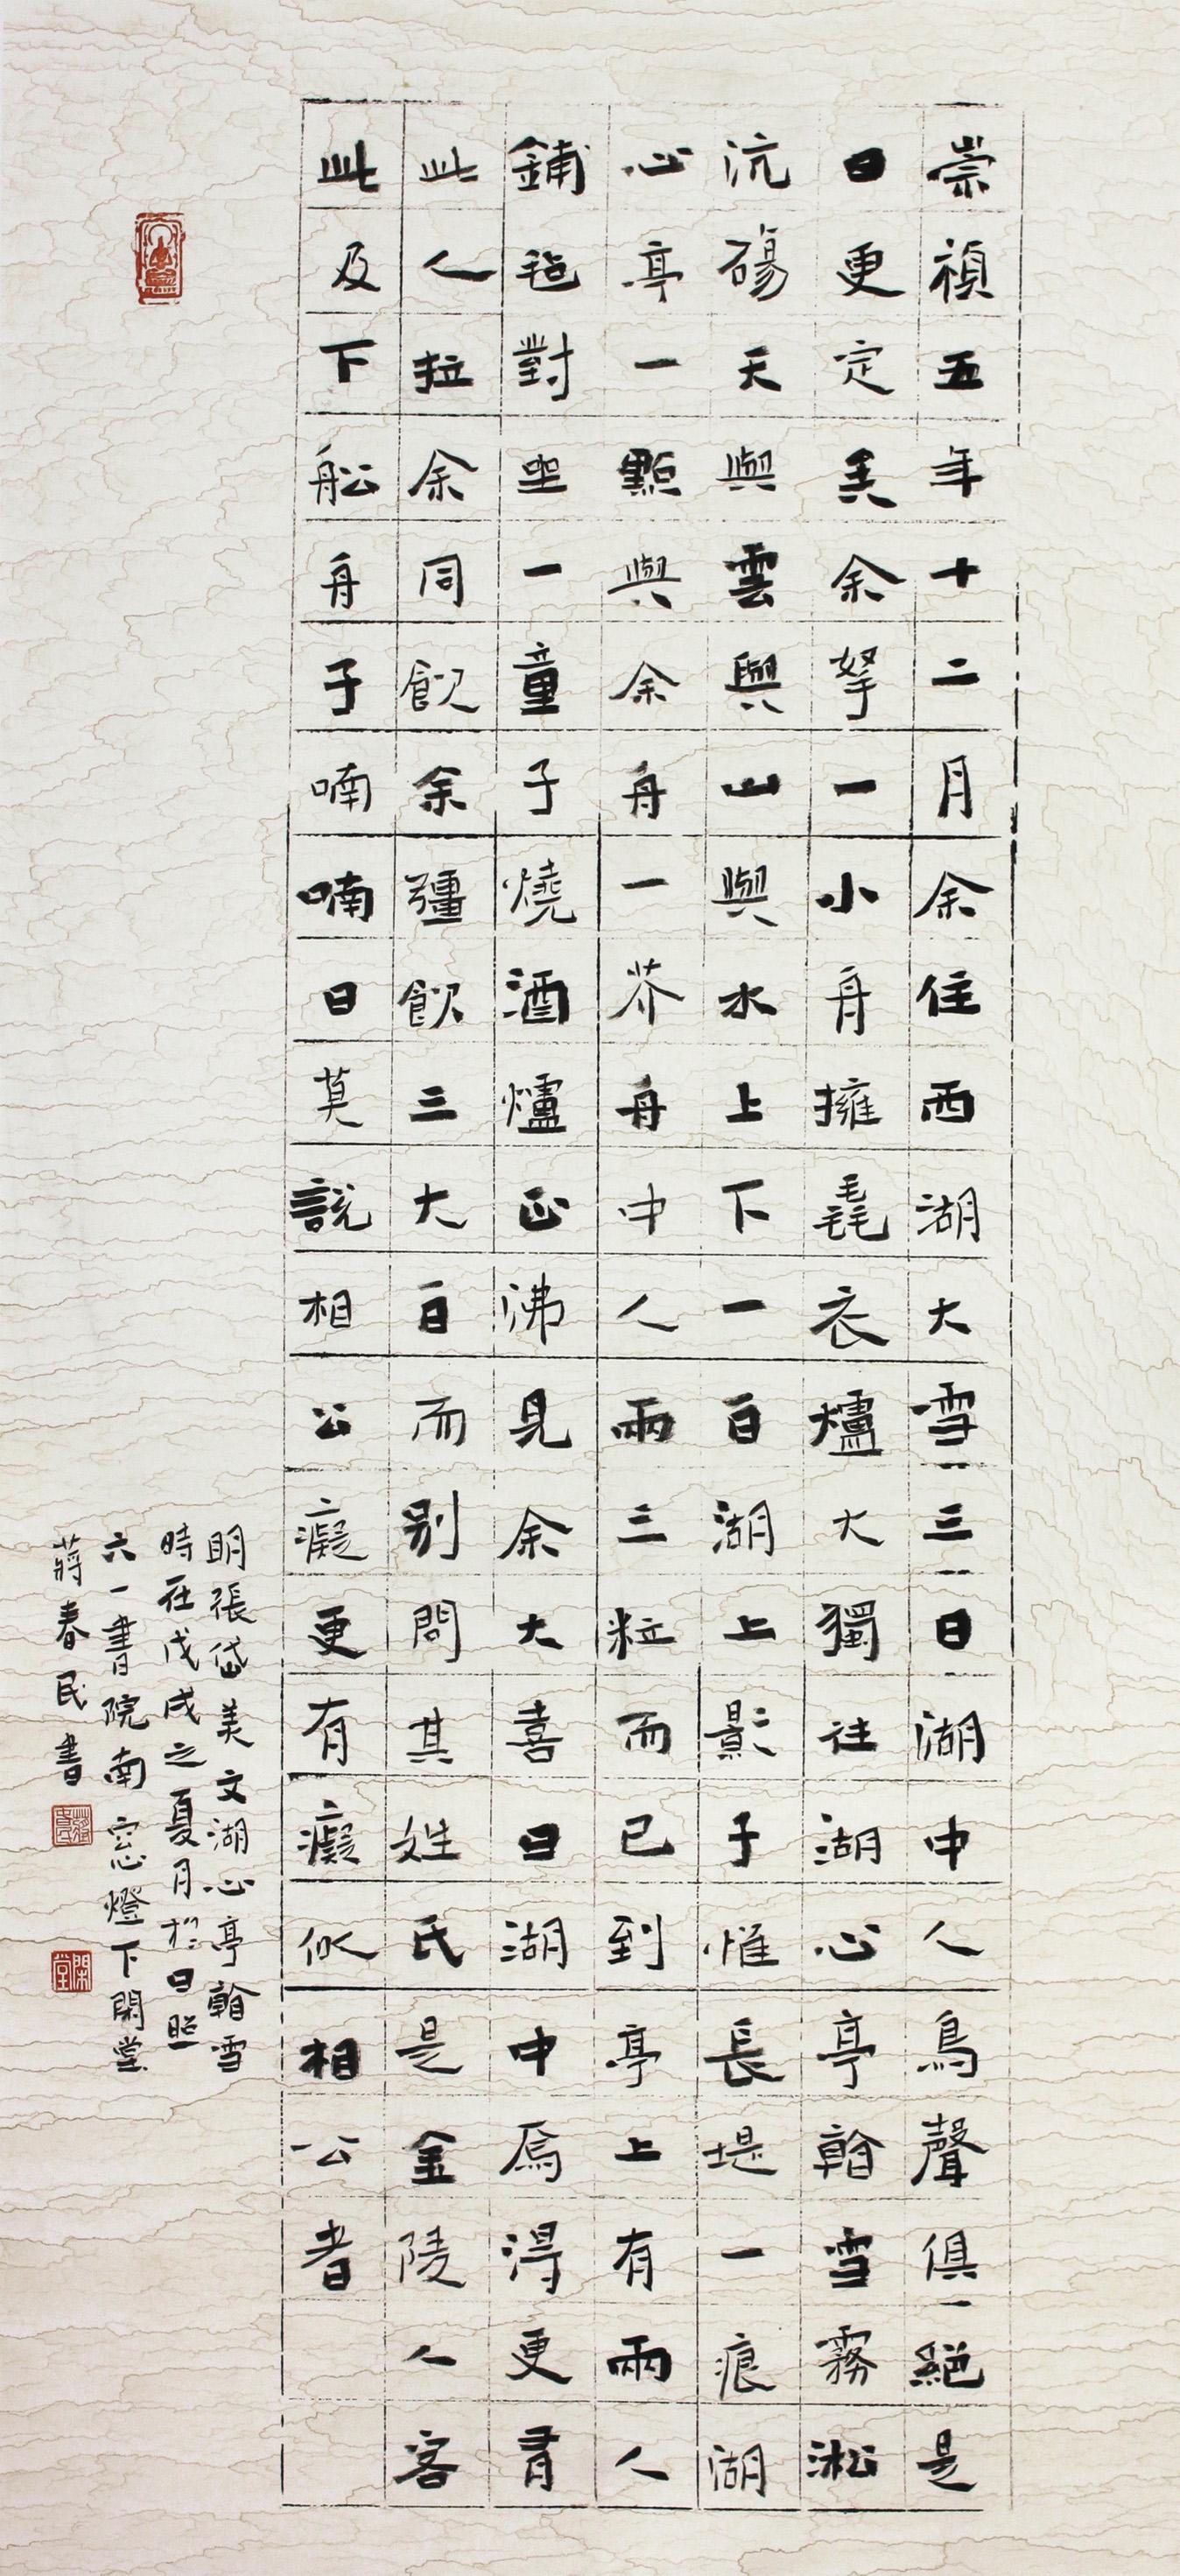 崇禎五年十二月余住西湖大雪三日湖中人鳥聲俱絕是
日更定矣余拏一小舟擁毳衣爐火獨往湖心亭翰雪霧淞
沆碭天與雲與山與水上下一白湖上影子惟長堤一痕湖
心亭一點與余舟一芥舟中人兩三粒而已到亭上有兩人
鋪毡對坐一童子燒酒爐正沸見余大喜曰湖中焉得更有
此人拉余同飲余彊飲三大白而別問其姓氏是金陵人客
此及下船舟子喃喃曰莫說相公癡更有癡似相公者
明張岱美文湖心亭翰雪
時在戊戌之夏月於日照
六一書院南窓燈下閑堂
蔣春民書